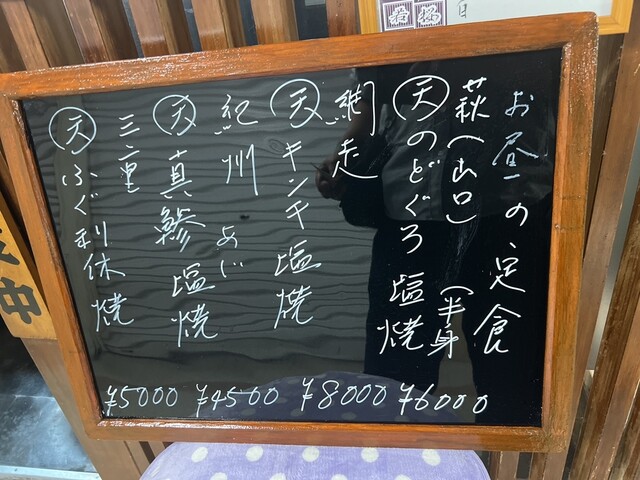 お昼の定食
萩(山口)
㊝のどぐろ塩焼
(半身
¥6000
網走
㊝キンキ塩焼
¥8000
紀州 あじ
㊝真鯵塩焼
¥4500
三重
㊝ふぐ利休焼
¥5000
中